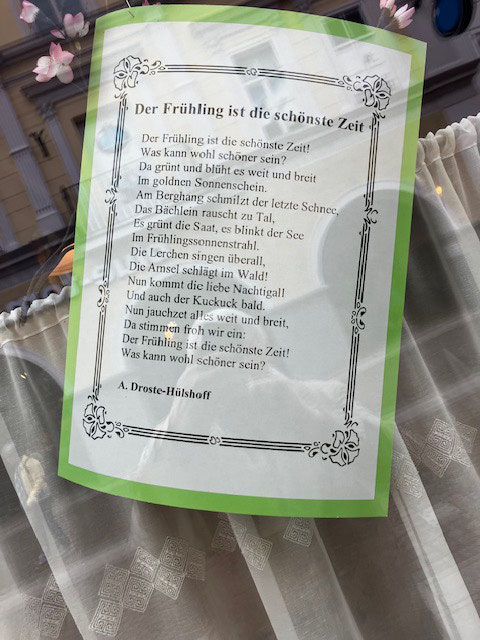 Der Frühling ist die schönste Zeit
Der Frühling ist die schönste Zeit!
Was kann wohl schöner sein?
Da grünt und blüht es weit und breit
Im goldnen Sonnenschein.
Am Berghang schmilzt der letzte Schnee,
Das Bächlein rauscht zu Tal,
Es grünt die Saat, es blinkt der See
Im Frühlingssonnenstrahl.
Die Lerchen singen überall,
Die Amsel schlägt im Wald!
Nun kommt die liebe Nachtigall
Und auch der Kuckuck bald.
Nun jauchzet alles weit und breit,
Da stimmen froh wir ein:
Der Frühling ist die schönste Zeit!
Was kann wohl schöner sein?
A. Droste-Hülshoff